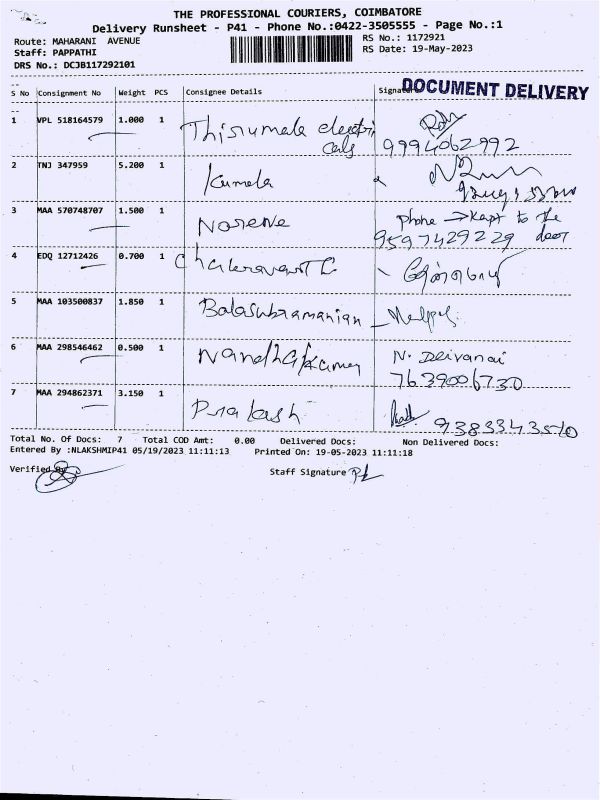 THE PROFESSIONAL COURIERS, COIMBATORE
Delivery Runsheet - P41 - Phone No.:0422-3505555 - Page No.:1
Route: MAHARANI AVENUE
RS No.: 1172921
Staff: PAPPATHI
RS Date: 19-May-2023
DRS No.: DCJB117292101
DOCUMENT DELIVERY
S No Consignment No Weight PCS Consignee Details
1 VPL 518164579 1.000 1 Thirumala electri
cals 9994062992
2 TNJ 347959 5.200 1 Kamala
3 MAA 570748707 1.500 1 Narene phone → kept to the
9597429229 door
4 EDQ 12712426 0.700 1
5 MAA 103500837 1.850 1 Balasubramanian
6 MAA 298546462 0.500 1 Nandhakumar N. Deivanai
7639006730
7 MAA 294862371 3.150 1 Prakash 9383343570
Total No. Of Docs: 7 Total COD Amt: 0.00 Delivered Docs: Non Delivered Docs:
Entered By :NLAKSHMIP41 05/19/2023 11:11:13 Printed On: 19-05-2023 11:11:18
Verified By
Staff Signature